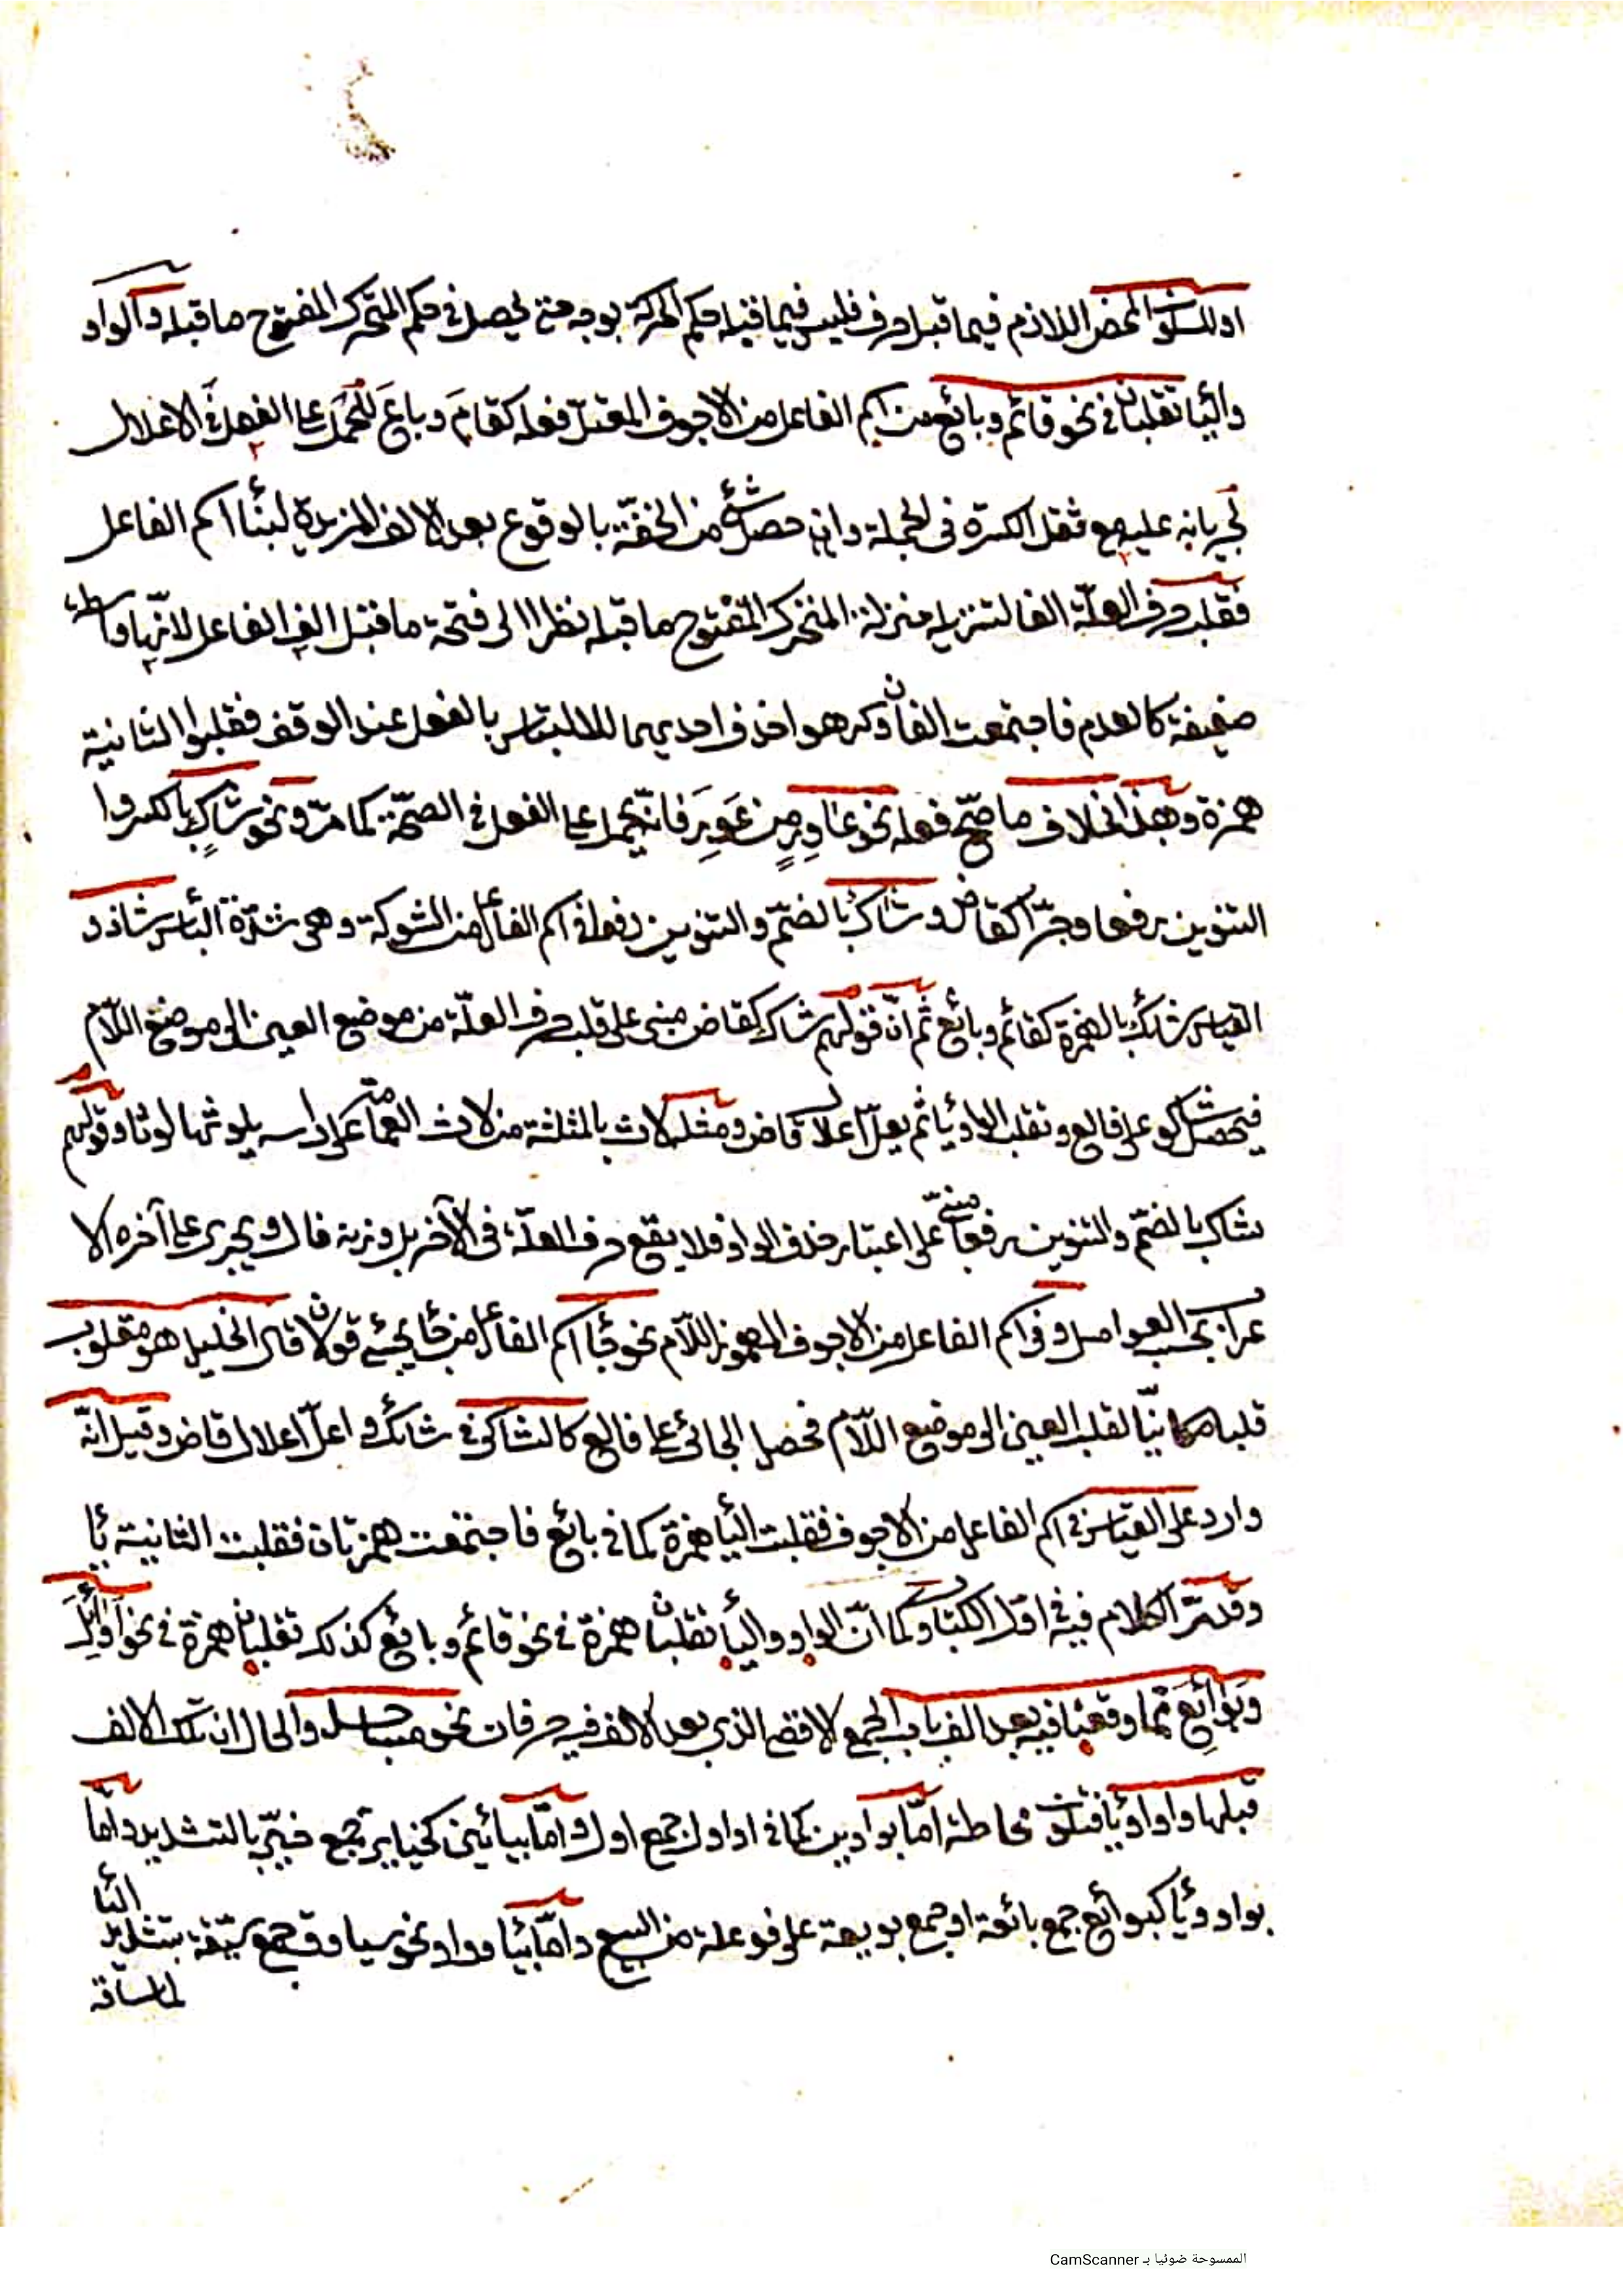 او للسكون المحض اللازم فيما قبل حرف فليس فيما قبله حكم الحركة بوجه حتى يحصل في حكم المتحرك المفتوح ما قبله والواو
واليا تقلبان في نحو قائم وبائع من اسم الفاعل من الاجوف المعتل فعله كقامَ وباعَ للحمل على الفعل في الاعلال
لجريانه عليه مع ثقل الكسرة في الجملة وان حصل شئ من الخفّة بالوقوع بعد الالف المزيدة لبنأ اسم الفاعل
فقلب حرف العلّة الفا لتنزيله منزلة المتحرك المفتوح ما قبله نظرا الى فتحة ما قبل الف الفاعل لانّها
ضعيفة كالعدم فاجتمعت الفان وكرهوا حذف احديهما للالتباس بالفعل عند الوقف فقلبوا الثانية
همزة وهذا بخلاف ما صحّ فعله نحو عاوِرٍ من عَوِرَ فانّه يحمل على الفعل في الصحّة كما مرّ ونحو شاكٍ بالكسر و
التنوين رفعا وجرّا كقاض وشاكٌ بالضمّ والتنوين رفعا في اسم الفاعل من الشوكة وهي شدّة البأس شاذ و
القياس شائك بالهمزة كقائم وبائع ثم انّ قولهم شاك كقاض مبنى على قلب حرف العلّة من موضع العين الى موضع اللّام
فيحصل شاكو على فالع وتقلب الواو يأ ثم يعلّ اعلال قاض ومثله لاث بالمثلثة من لاث العمامة على راسه يلوثها لوثا وقولهم
شاك بالضمّ والتنوين رفعا مبنىّ على اعتبار حذف الواو فلا يقع حرف العلّة في الآخر بل وزنه فال ويجرى على آخره الا
عراب بحسب العوامل وفي اسم الفاعل من الاجوف المهموز اللّام نحو جأ اسم الفاعل من جأ يجئ قولان قال الخليل هو مقلوب
قلبا مكانيّا لقلب العين الى موضع اللّام فحصل الجائى على فالع كالشاكى في شائك و اعلّ اعلال قاض وقيل انّه
وارد على القياس في اسم الفاعل من الاجوف فقلبت اليأ همزة كما في بائع فاجتمعت همزتان فقلبت الثانية يأ
وقد مرّ الكلام فيه في اوّل الكتاب وكما انّ الواو واليأ تقلبان همزة في نحو قائم وبائع كذلك تقلبان همزة في نحو اَوائِلَ
وبَوائِعَ ممّا وقعتا فيه بعد الف باب الجمع الاقصى الذي بعد الالف فيه حرفان نحو مساجد والحال ان تلك الالف
قبلها واو او يأ فتكون محاطة امّا بواوين كما في اوائل جمع اول وامّا بيائين كخيائر جمع خيّر بالتشديد وامّا
بواو ويأ كبوائع جمع بائعة او جمع بويعة على فوعلة من البيع وامّا بيأ وواو نحو سياوق جمع سيّقة بتشديد
اليأ
لما ساقه
الممسوحة ضوئيا بـ CamScanner